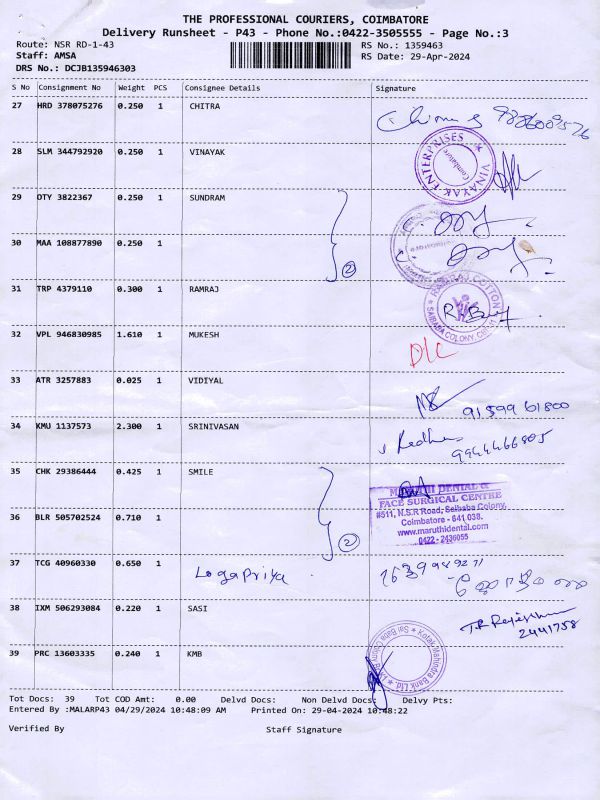 THE PROFESSIONAL COURIERS, COIMBATORE
Delivery Runsheet - P43 - Phone No.:0422-3505555 - Page No.:3
Route: NSR RD-1-43 RS No.: 1359463
Staff: AMSA RS Date: 29-Apr-2024
DRS No.: DCJB135946303
S No Consignment No Weight PCS Consignee Details Signature
27 HRD 378075276 0.250 1 CHITRA
28 SLM 344792920 0.250 1 VINAYAK VINAYAK ENTERPRISES Coimbatore
29 OTY 3822367 0.250 1 SUNDRAM
30 MAA 108877890 0.250 1
2
31 TRP 4379110 0.300 1 RAMRAJ RAMRAJ COTTON SAIBABA COLONY, CBE-11
32 VPL 946830985 1.610 1 MUKESH DLC
33 ATR 3257883 0.025 1 VIDIYAL
91599 61800
34 KMU 1137573 2.300 1 SRINIVASAN
9944466805
35 CHK 29386444 0.425 1 SMILE
MARUTHI DENTAL &
FACE SURGICAL CENTRE
#511, N.S.R Road, Saibaba Colony,
36 BLR 505702524 0.710 1 Coimbatore - 641 038.
www.maruthidental.com
2 0422 - 2436055
37 TCG 40960330 0.650 1 LogaPriya
38 IXM 506293084 0.220 1 SASI
2441758
39 PRC 13603335 0.240 1 KMB Kotak Mahindra Bank Ltd
Tot Docs: 39 Tot COD Amt: 0.00 Delvd Docs: Non Delvd Docs: Delvy Pts:
Entered By :MALARP43 04/29/2024 10:48:09 AM Printed On: 29-04-2024 10:48:22
Verified By Staff Signature